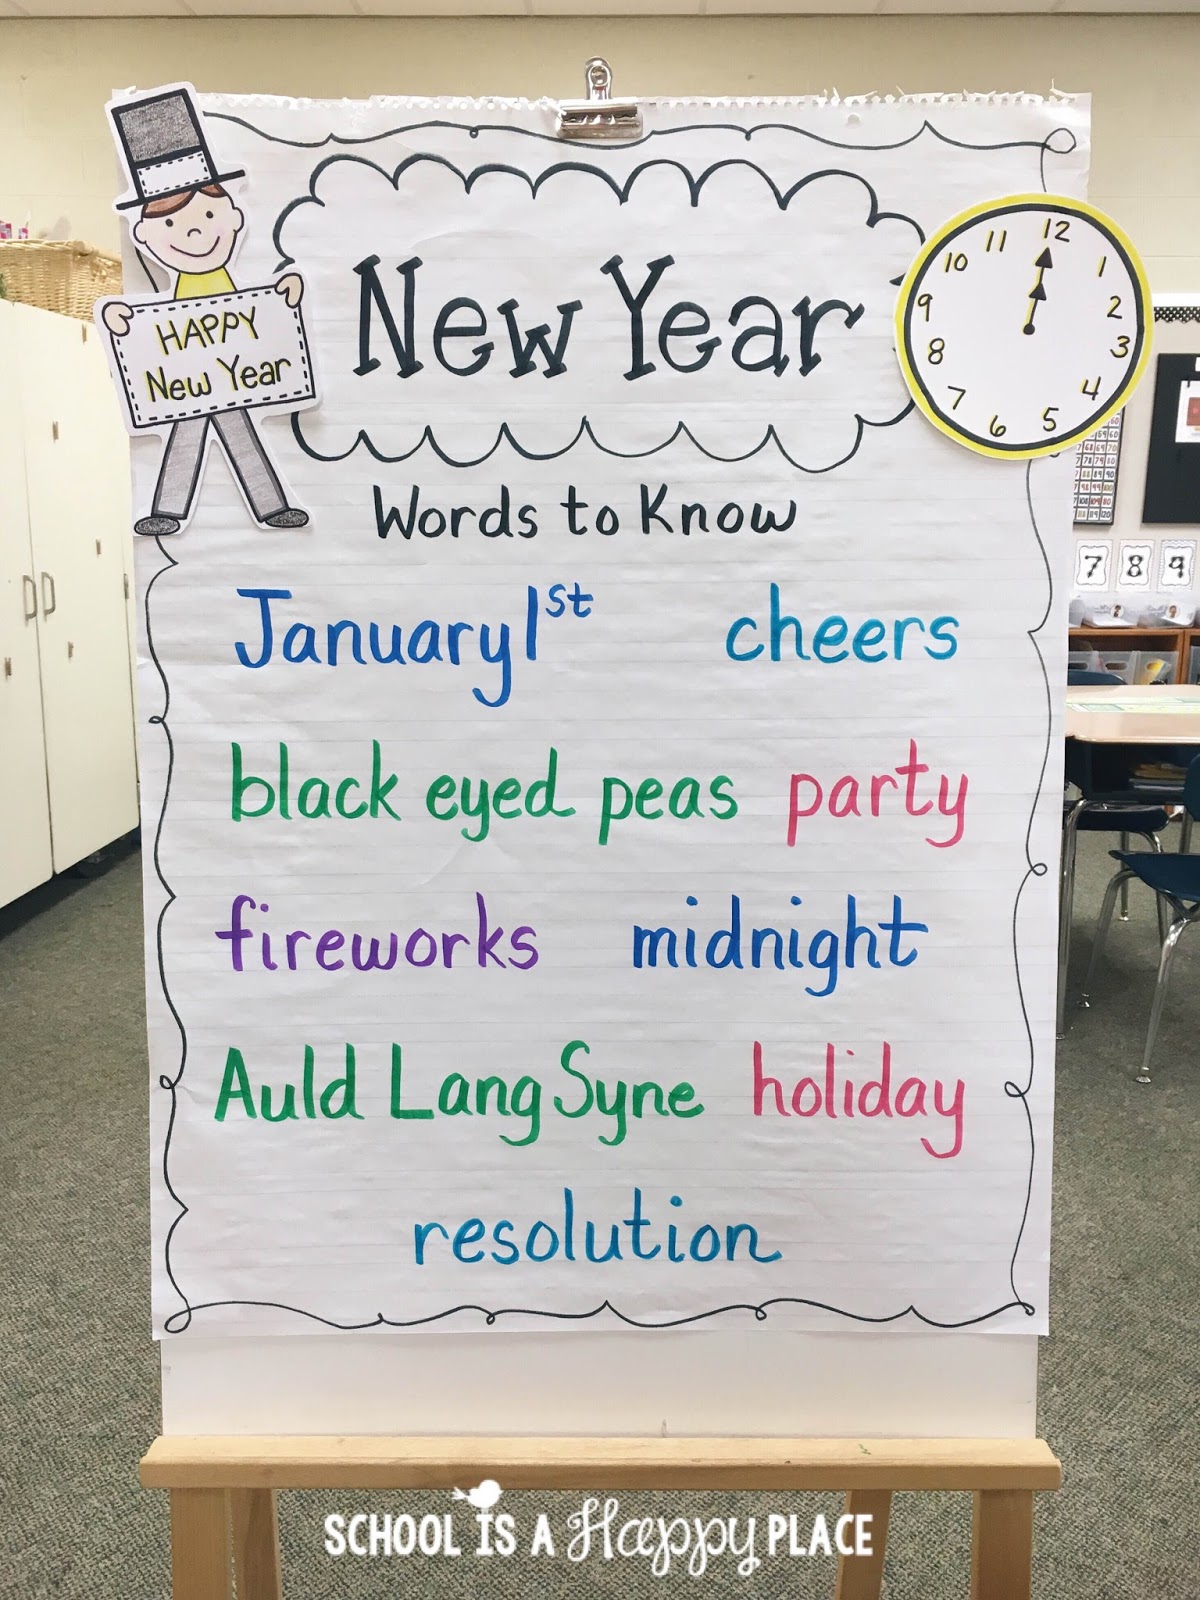 HAPPY
New Year
New Year
12
1
2
3
4
5
6
7
8
9
10
11
Words to Know
January 1st cheers
black eyed peas party
fireworks midnight
Auld Lang Syne holiday
resolution
7 8 9
SCHOOL IS A Happy PLACE